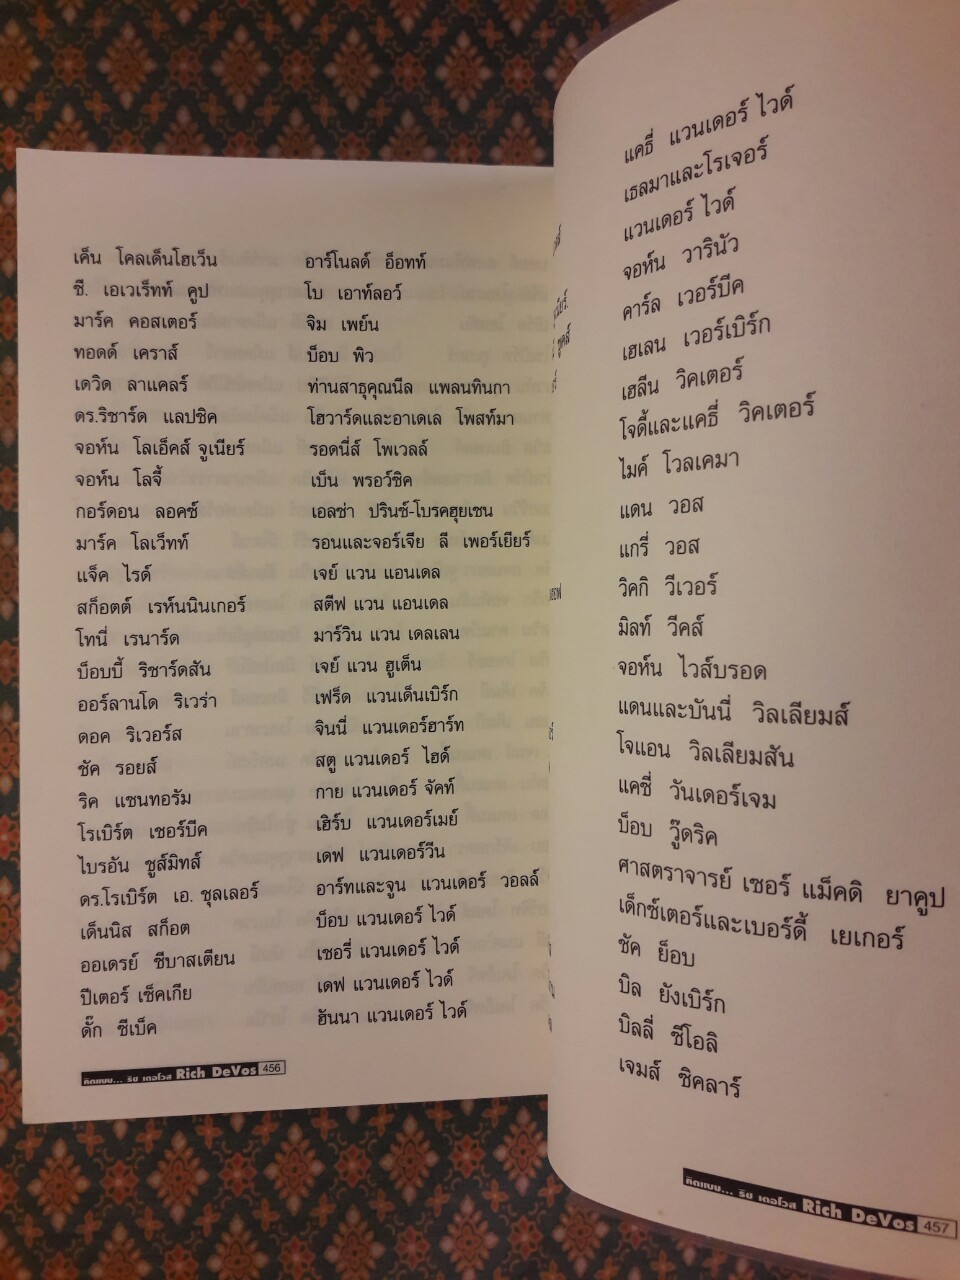 เค็น โคลเด็นโฮเว็น
ซี. เอเวเร็ทท์ คูป
มาร์ค คอสเตอร์
ทอดด์ เคราส์
เดวิด ลาแคลร์
ดร.ริชาร์ด แลปชิค
จอห์น โลเอ็คส์ จูเนียร์
จอห์น โลจี้
กอร์ดอน ลอคซ์
มาร์ค โลเว็ทท์
แจ็ค ไรด์
สก็อตต์ เรห์นนินเกอร์
โทนี่ เรนาร์ด
บ็อบบี้ ริชาร์ดสัน
ออร์ลานโด ริเวร่า
ดอค ริเวอร์ส
ชัค รอยส์
ริค แซนทอรัม
โรเบิร์ต เชอร์บีค
ไบรอัน ชูส์มิทส์
ดร.โรเบิร์ต เอ. ชุลเลอร์
เด็นนิส สก็อต
ออเดรย์ ซีบาสเตียน
ปีเตอร์ เซ็คเกีย
ดั๊ก ซีเบ็ค
อาร์โนลด์ อ็อทท์
โบ เอาท์ลอว์
จิม เพย์น
บ็อบ พิว
ท่านสาธุคุณนีล แพลนทินกา
โฮวาร์ดและอาเดเล โพสท์มา
รอดนี่ส์ โพเวลล์
เบ็น พรอว์ซิค
เอลซ่า ปรินซ์-โบรคฮุยเซน
รอนและจอร์เจีย ลี เพอร์เยียร์
เจย์ แวน แอนเดล
สตีฟ แวน แอนเดล
มาร์วิน แวน เดลเลน
เจย์ แวน ฮูเต็น
เฟร็ด แวนเด็นเบิร์ก
จินนี่ แวนเดอร์ฮาร์ท
สตู แวนเดอร์ ไฮด์
กาย แวนเดอร์ จัคท์
เฮิร์บ แวนเดอร์เมย์
เดฟ แวนเดอร์วีน
อาร์ทและจูน แวนเดอร์ วอลล์
บ็อบ แวนเดอร์ ไวด์
เชอรี่ แวนเดอร์ ไวด์
เดฟ แวนเดอร์ ไวด์
ฮันนา แวนเดอร์ ไวด์
คิดแบบ... ริช เดอโวส Rich DeVos 456
แคธี่ แวนเดอร์ ไวด์
เธลมาและโรเจอร์
แวนเดอร์ ไวด์
จอห์น วารินัว
คาร์ล เวอร์บีค
เฮเลน เวอร์เบิร์ก
เฮลีน วิคเตอร์
โจดี้และแคธี่ วิคเตอร์
ไมค์ โวลเคมา
แดน วอส
แกรี่ วอส
วิคกิ วีเวอร์
มิลท์ วีคส์
จอห์น ไวส์บรอด
แดนและบันนี่ วิลเลียมส์
โจแอน วิลเลียมสัน
แคซี่ วันเดอร์เจม
บ็อบ วู๊ดริค
ศาสตราจารย์ เชอร์ แม็คดิ ยาคูป
เด็กซ์เตอร์และเบอร์ดี้ เยเกอร์
ชัค ย็อบ
บิล ยังเบิร์ก
บิลลี่ ซีโอลิ
เจมส์ ซิคลาร์
คิดแบบ... ริช เดอโวส Rich DeVos 457